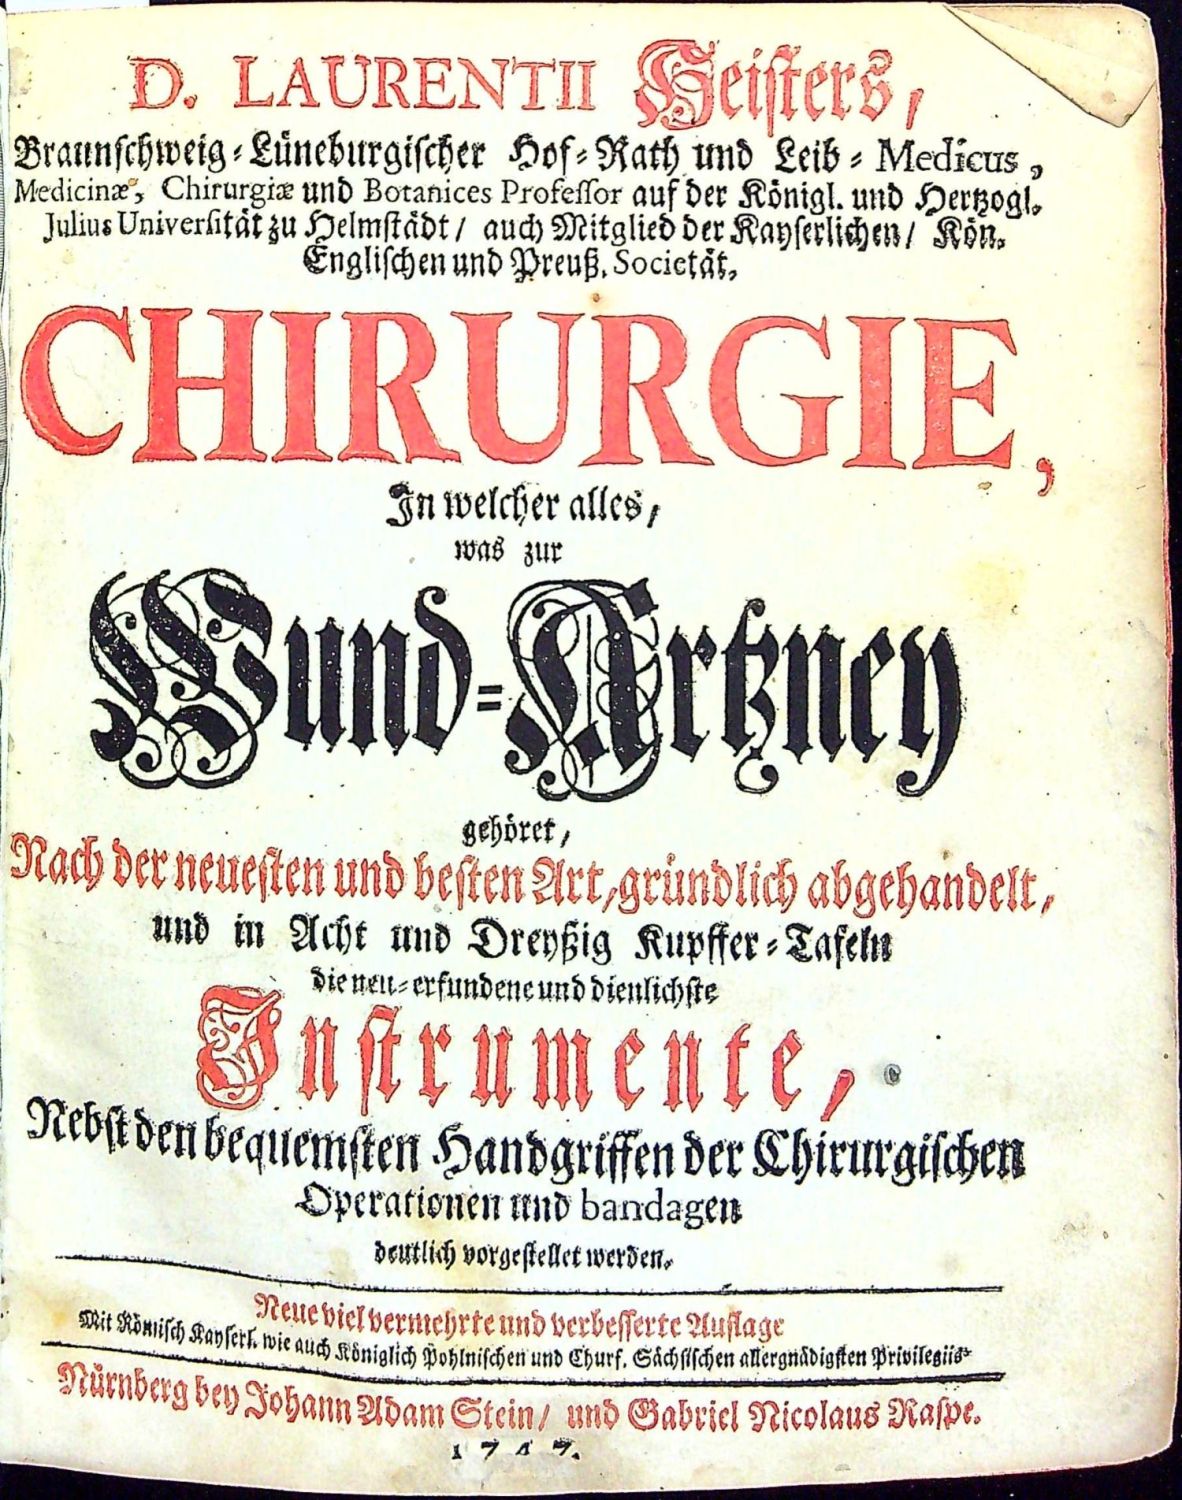 D. LAURENTII Heisters,
Braunschweig-Lüneburgischer Hof-Rath und Leib-Medicus,
Medicinæ, Chirurgiæ und Botanices Professor auf der Königl. und Hertzogl.
Julius Universität zu Helmstädt/ auch Mitglied der Kayserlichen/ Kön.
Englischen und Preuß. Societät.
CHIRURGIE,
In welcher alles,
was zur
Wund-Artzney
gehöret,
Nach der neuesten und besten Art, gründlich abgehandelt,
und in Acht und Dreyßig Kupffer-Tafeln
die neu-erfundene und dienlichste
Instrumente,
Nebst den bequemsten Handgriffen der Chirurgischen
Operationen und bandagen
deutlich vorgestellet werden.
Neue viel vermehrte und verbesserte Auflage
Mit Römisch Kayserl. wie auch Königlich Pohlnischen und Churf. Sächsischen allergnädigsten Privilegiis.
Nürnberg bey Johann Adam Stein/ und Gabriel Nicolaus Raspe.
1747.